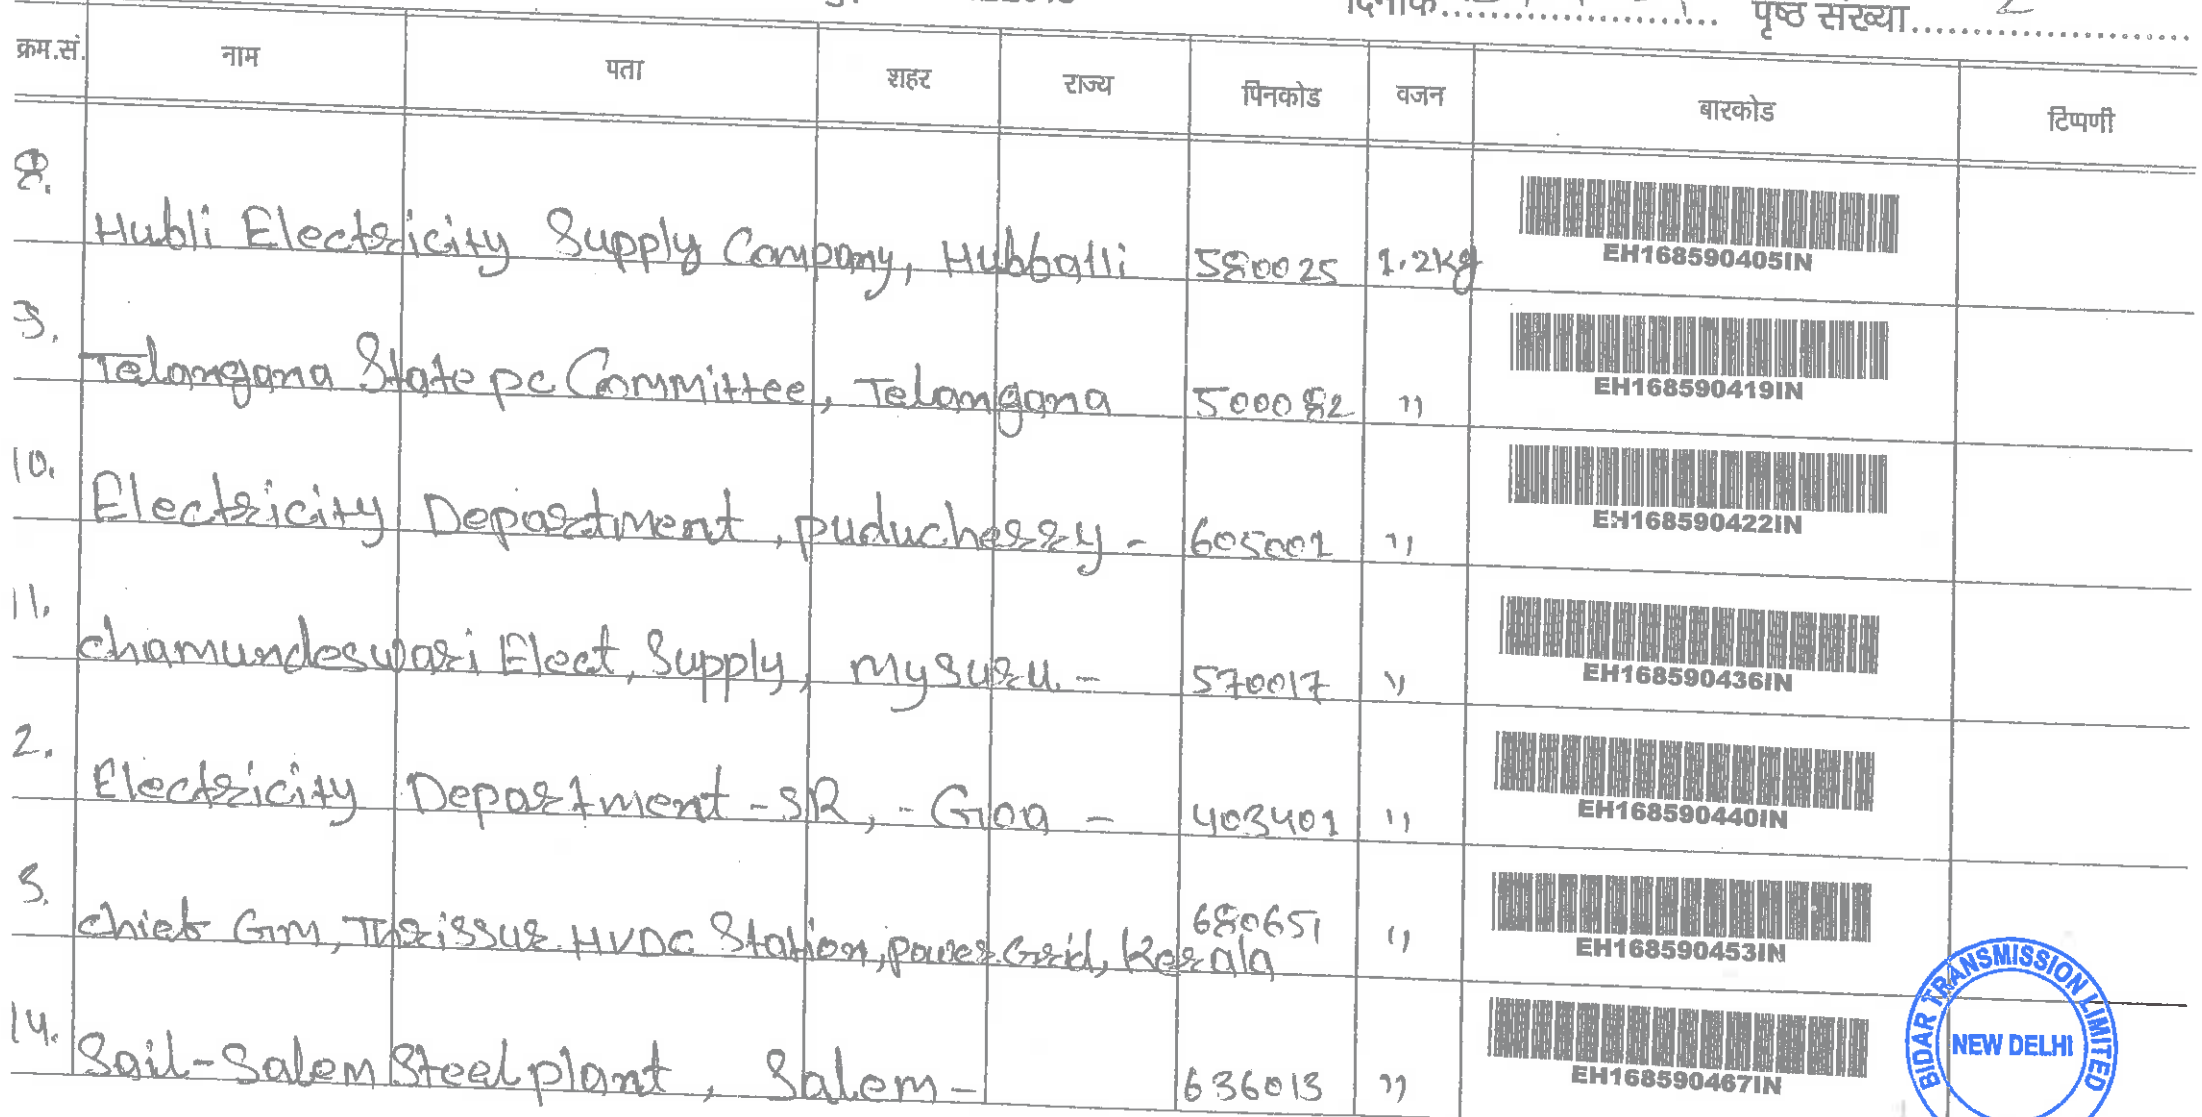 दिनांक........................ पृष्ठ संख्या........................ 2
क्रम.सं. नाम पता शहर राज्य पिनकोड वजन बारकोड टिप्पणी
8. Hubli Electricity Supply Company, Hubballi 580025 1.2kg EH168590405IN
9. Telangana State pc Committee, Telangana 500082 " EH168590419IN
10. Electricity Department, puducherry - 605001 " EH168590422IN
11. chamundeswari Elect, Supply, mysuru. - 570017 " EH168590436IN
2. Electricity Department - SR, - Goa - 403401 " EH168590440IN
3. chief Gm, Thrissur HVDC Station, power Grid, Kerala 680651 " EH168590453IN
14. Sail-Salem Steel plant, Salem - 636013 " EH168590467IN
BIDAR TRANSMISSION LIMITED
NEW DELHI